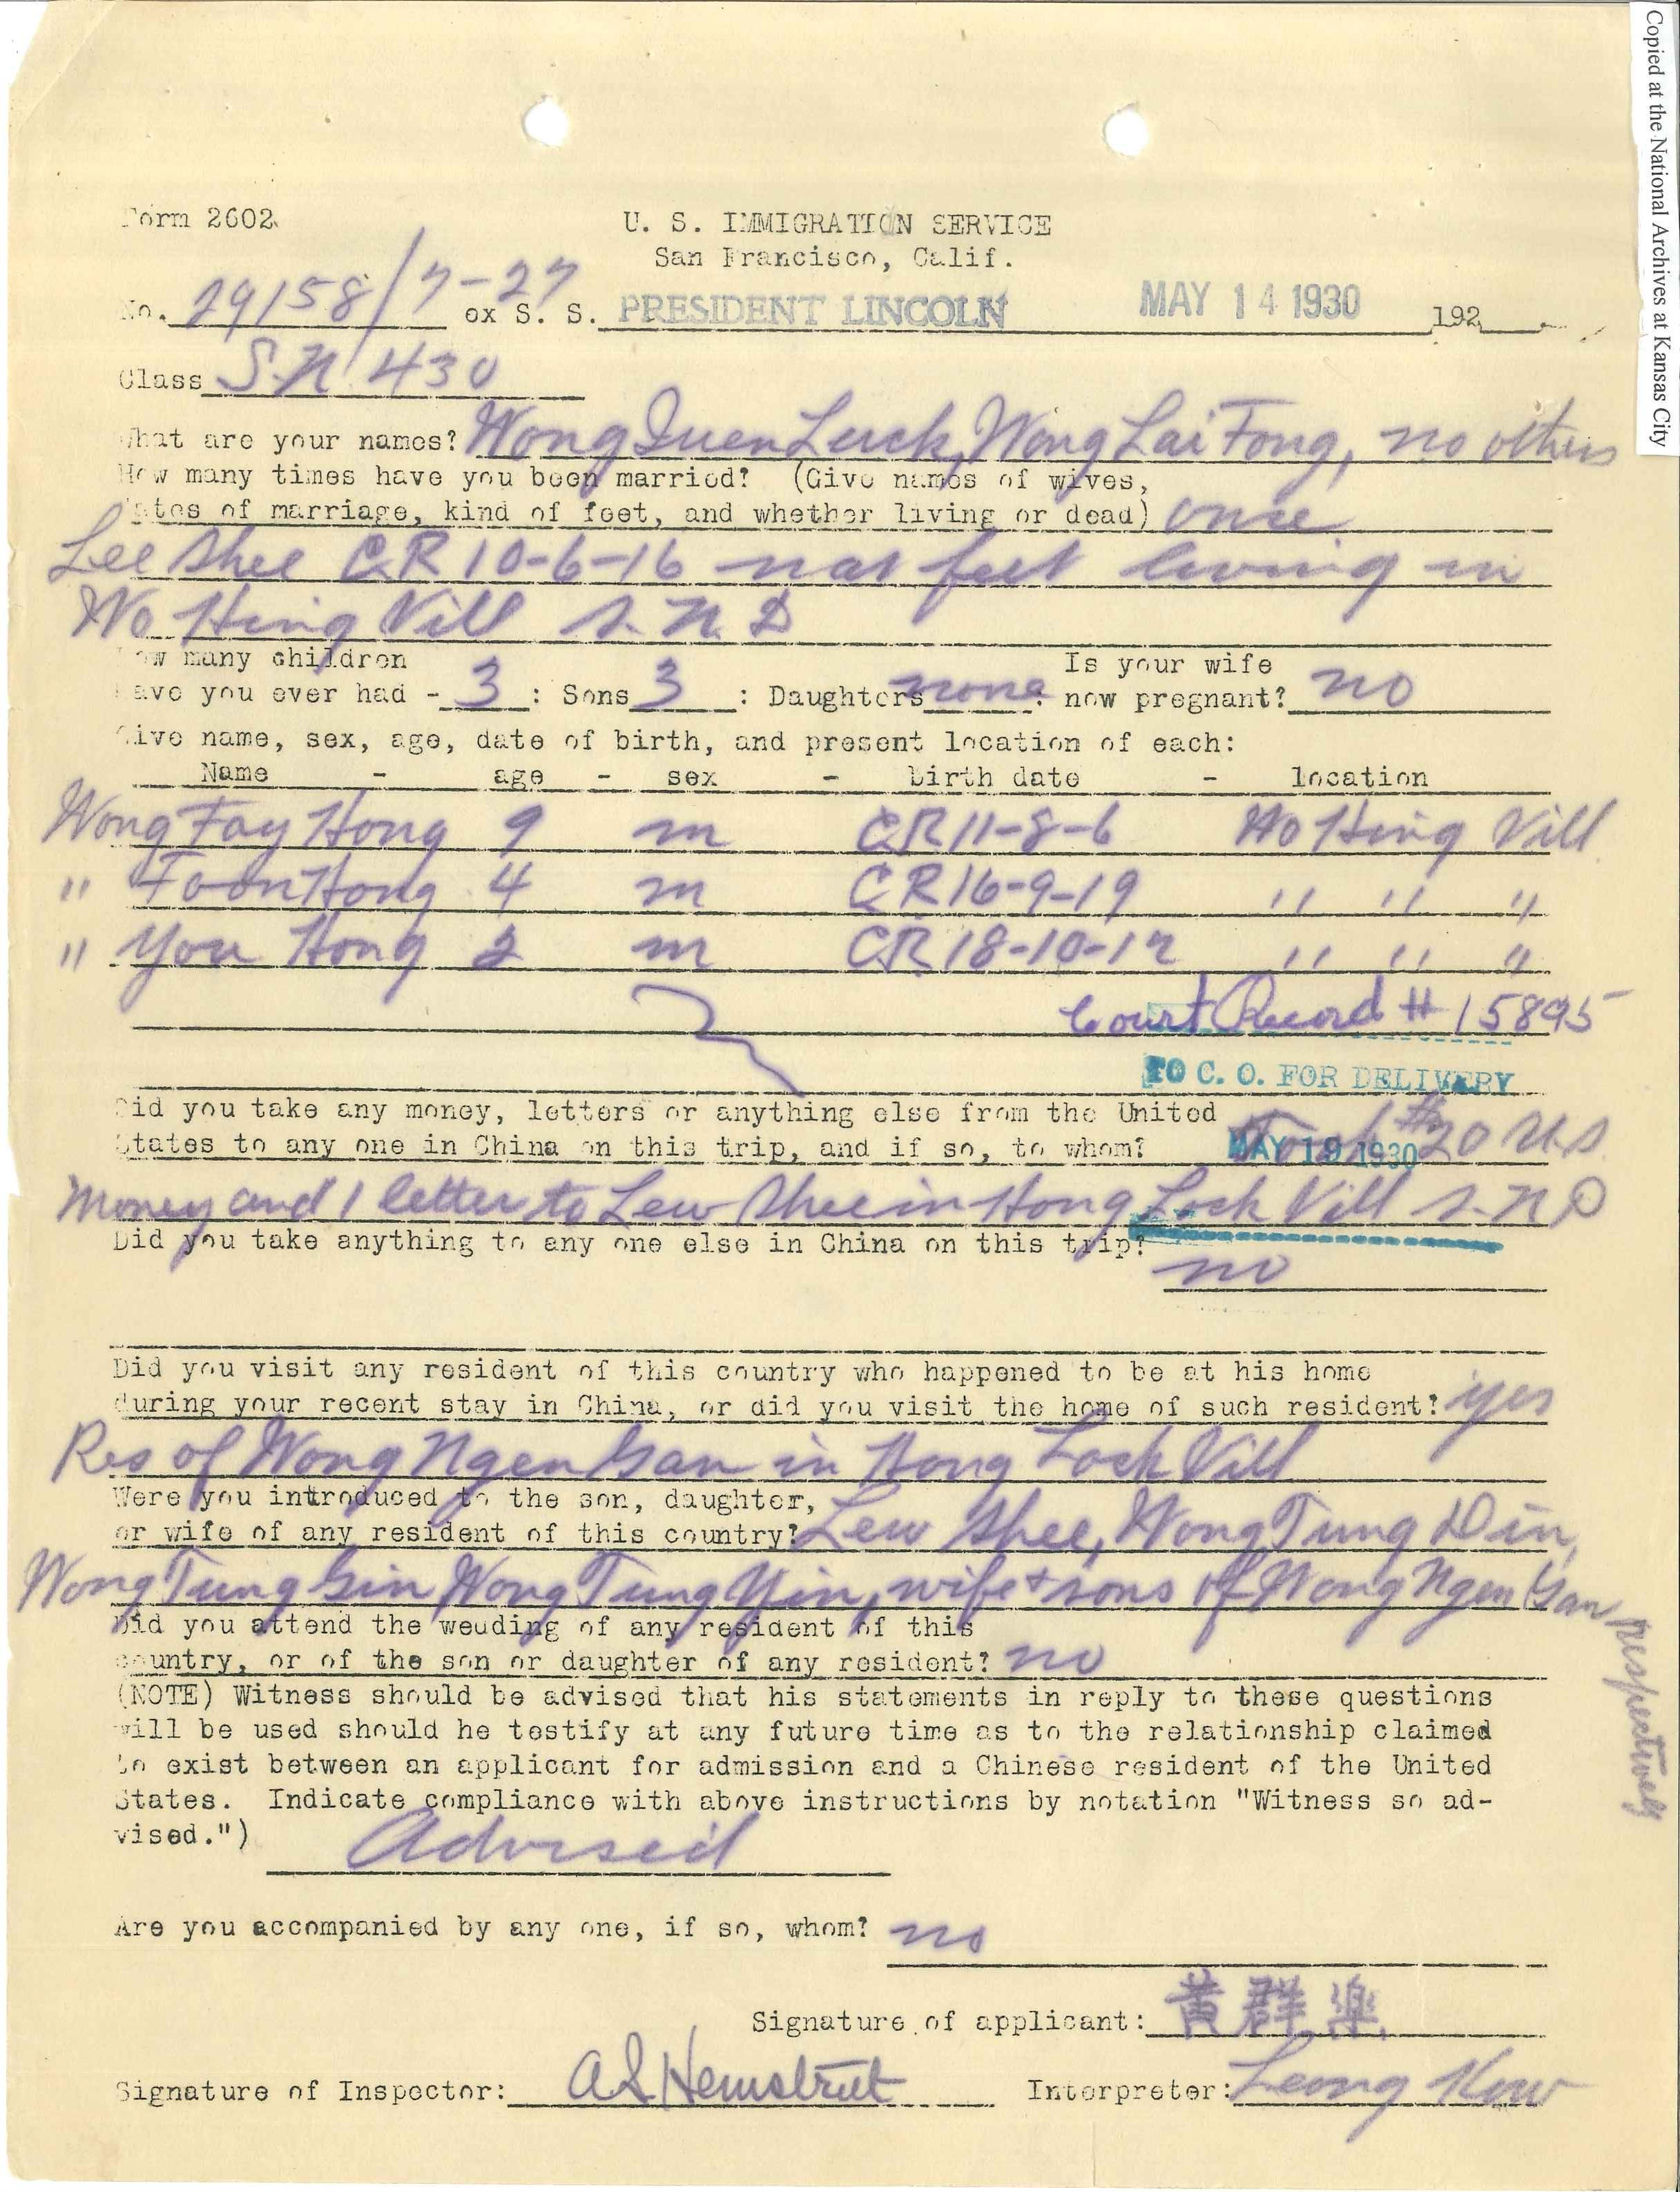 Copied at the National Archives at Kansas City
Form 2602
U. S. IMMIGRATION SERVICE
San Francisco, Calif.
No. 29158/7-27 ex S. S. PRESIDENT LINCOLN MAY 14 1930 192
Class S.N. 430
What are your names? Wong Quen Luck, Wong Lai Fong, no others
How many times have you been married? (Give names of wives,
dates of marriage, kind of feet, and whether living or dead) once
Lee Shee CR 10-6-16 nat feet living in
Wo Hing Vill S. N. D
How many children Is your wife
have you ever had - 3 : Sons 3 : Daughters none : now pregnant? no
Give name, sex, age, date of birth, and present location of each:
Name - age - sex - birth date - location
Wong Fay Hong 9 m CR 11-8-6 Wo Hing Vill
" Foon Hong 4 m CR 16-9-19 " " "
" You Hong 2 m CR 18-10-17 " " "
Court Record # 15895
TO C. O. FOR DELIVERY
Did you take any money, letters or anything else from the United
States to any one in China on this trip, and if so, to whom? Took $20 U.S.
MAY 19 1930
Money and 1 letter to Lew Shee in Hong Lock Vill S.N.D
Did you take anything to any one else in China on this trip?
no
Did you visit any resident of this country who happened to be at his home
during your recent stay in China, or did you visit the home of such resident? yes
Res of Wong Ngen Gan in Hong Lock Vill
Were you introduced to the son, daughter,
or wife of any resident of this country? Lew Shee, Wong Tung Din,
Wong Tung Gin Wong Tung Yin, wife + sons of Wong Ngen Gan respectively
Did you attend the wedding of any resident of this
country, or of the son or daughter of any resident? no
(NOTE) Witness should be advised that his statements in reply to these questions
will be used should he testify at any future time as to the relationship claimed
to exist between an applicant for admission and a Chinese resident of the United
States. Indicate compliance with above instructions by notation "Witness so ad-
vised.") Advised
Are you accompanied by any one, if so, whom? no
Signature of applicant: 黃群樂
Signature of Inspector: A S Hemstreet Interpreter: Leong Kow